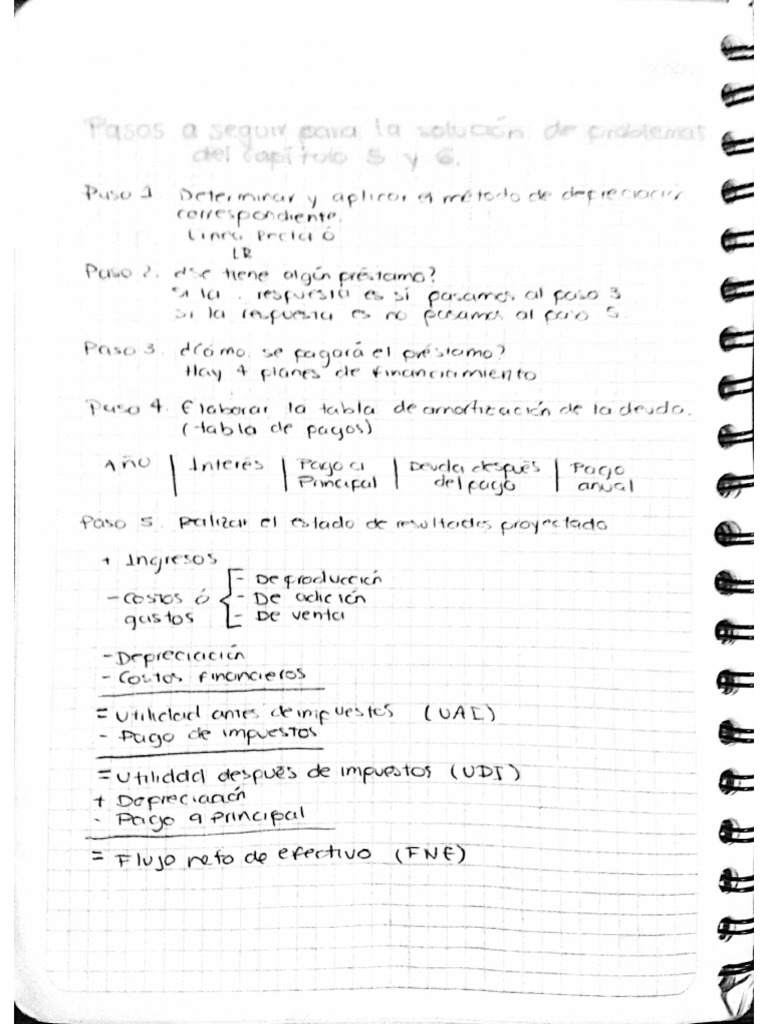 Pasos a seguir para la solución de problemas
del capítulo 5 y 6.
Paso 1. Determinar y aplicar el método de depreciación
correspondiente.
Línea Recta ó
LR
Paso 2. ¿Se tiene algún préstamo?
Si la respuesta es sí pasamos al paso 3
Si la respuesta es no pasamos al paso 5.
Paso 3. ¿Cómo se pagará el préstamo?
Hay 4 planes de financiamiento
Paso 4. Elaborar la tabla de amortización de la deuda.
(tabla de pagos)
Año | Interés | Pago a | Deuda después | Pago
Principal | del pago | anual
Paso 5. Realizar el estado de resultados proyectado
+ Ingresos
- De producción
- costos ó - De adición
gastos - De venta
- Depreciación
- Costos financieros
= Utilidad antes de impuestos (UAI)
- Pago de impuestos
= Utilidad después de impuestos (UDI)
+ Depreciación
- Pago a principal
= Flujo neto de efectivo (FNE)